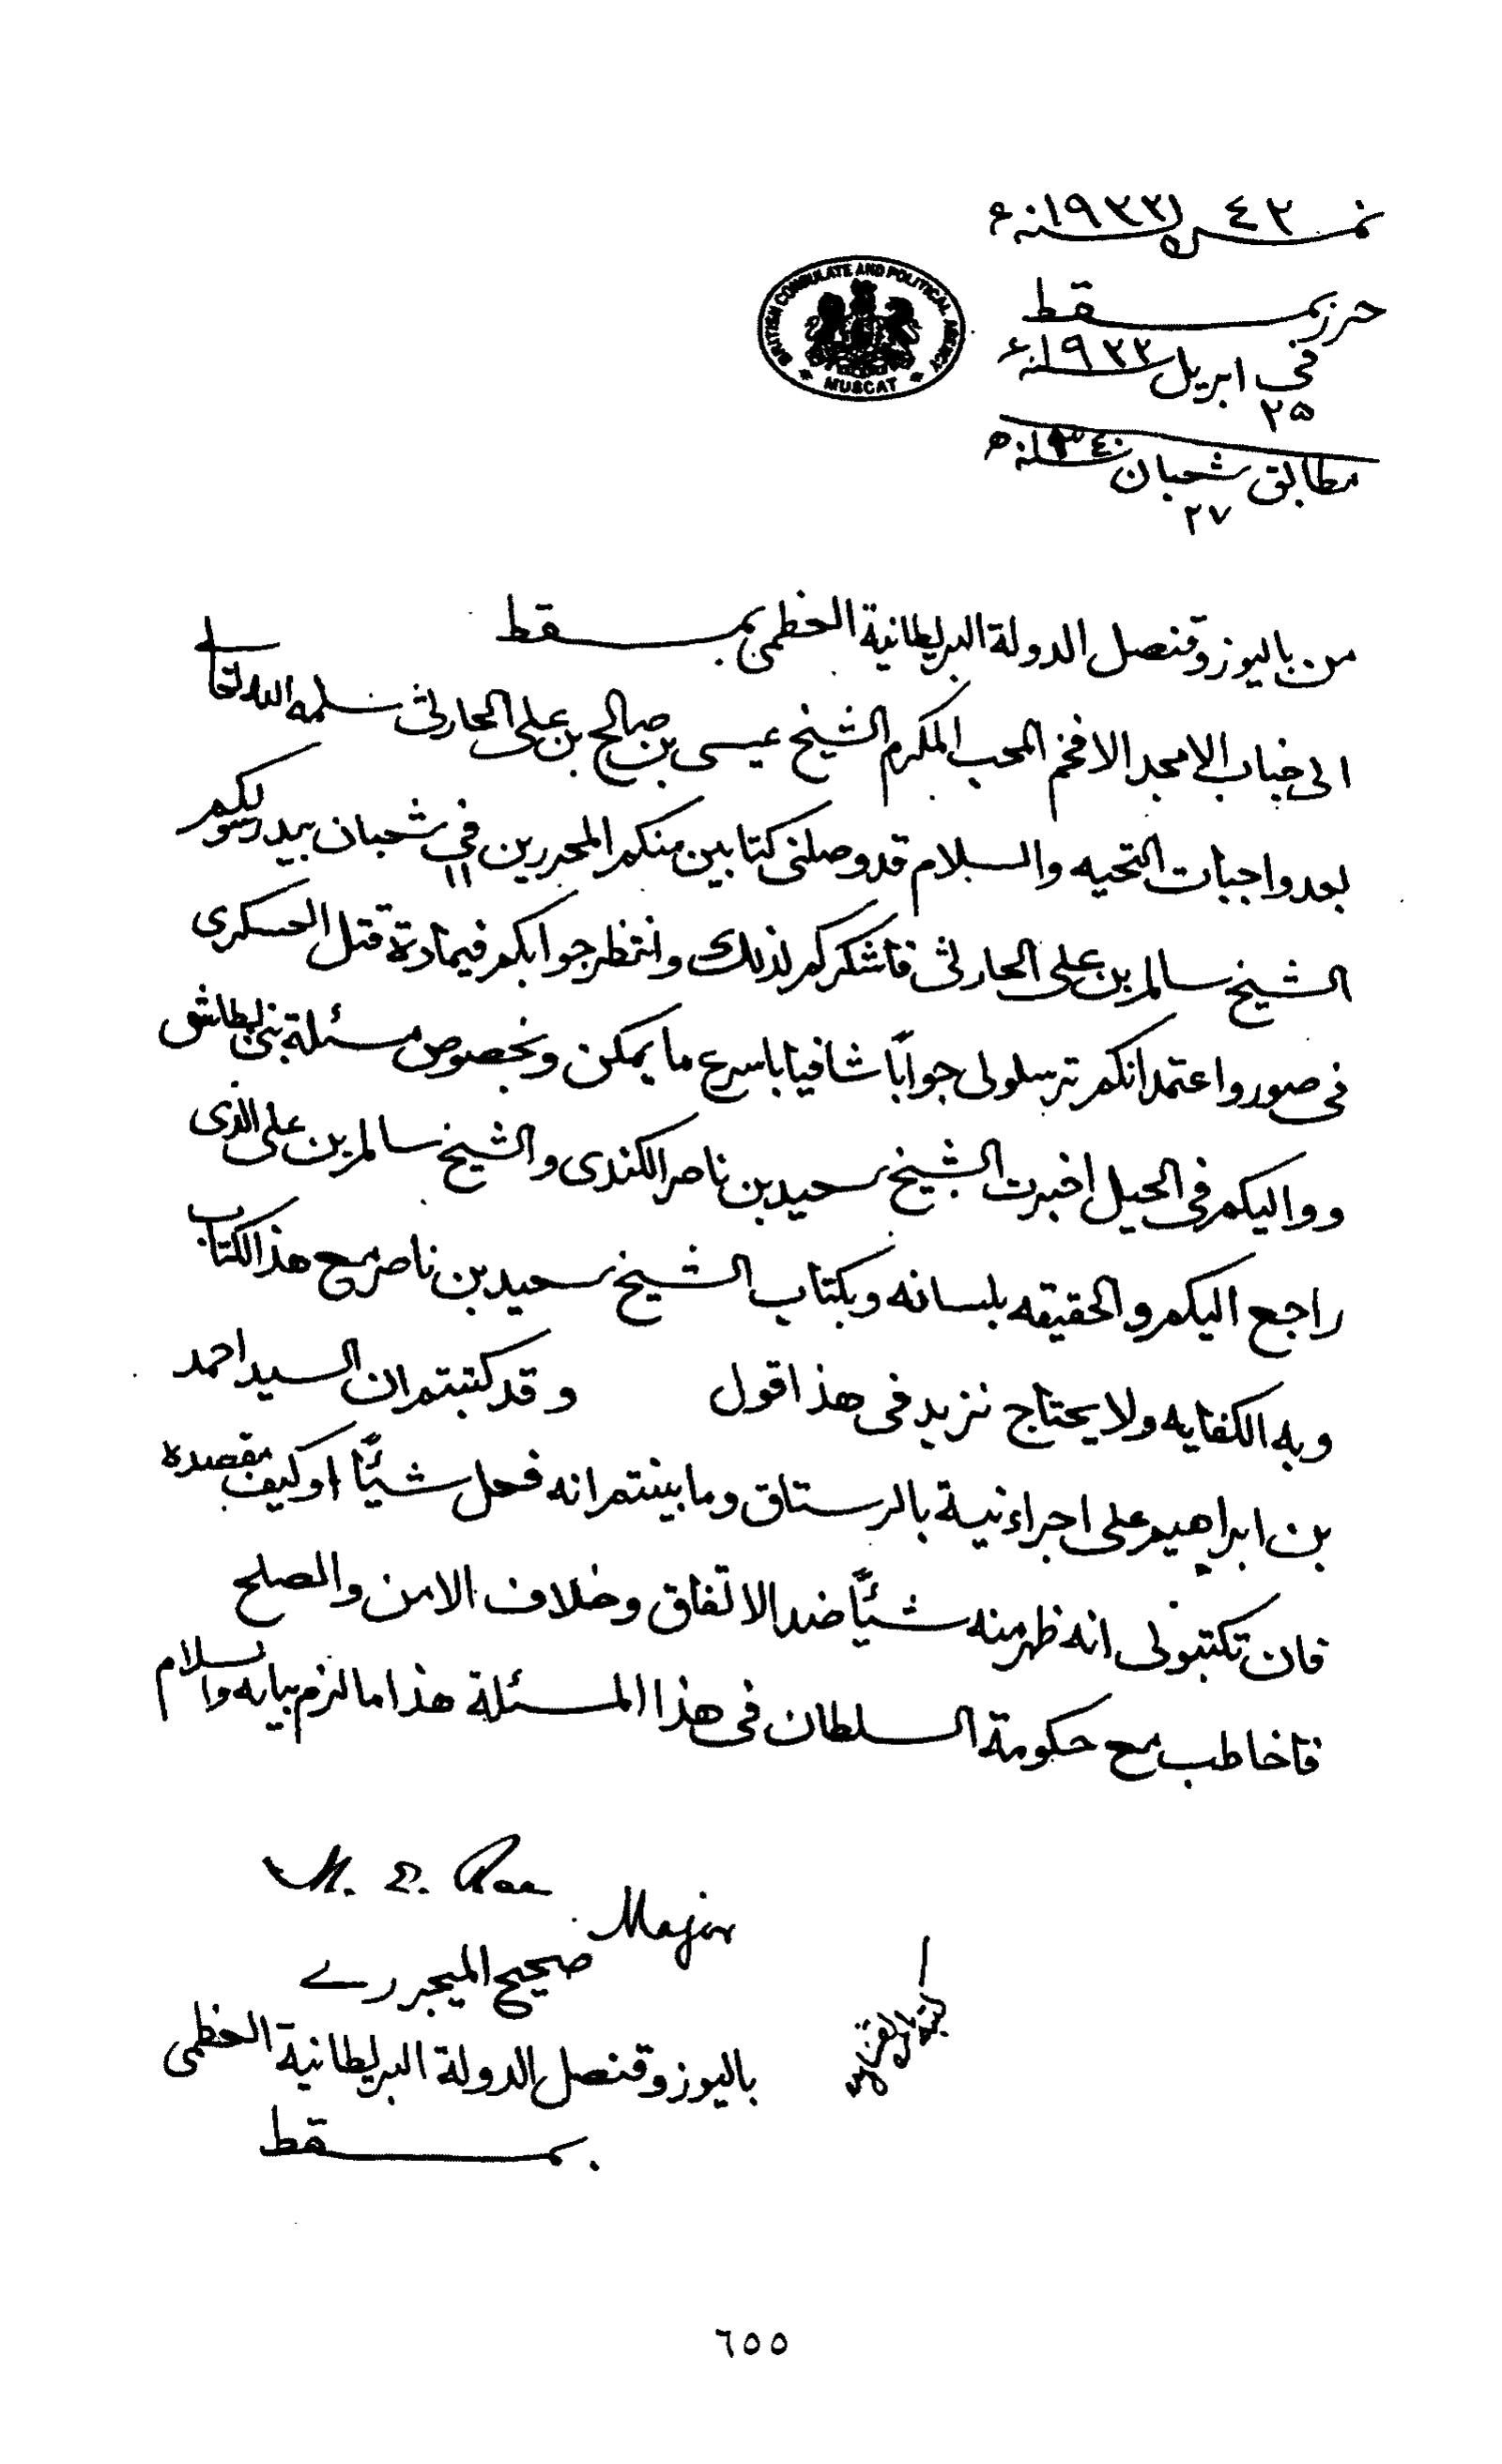 نمرة ٤٢ سنه ١٩٢٢ء
حرر بمسقط
في ٢٥ ابريل سنه ١٩٢٢ء
مطابق ٢٧ شعبان سنه ١٣٤٠ه
BRITISH CONSULATE AND POLITICAL AGENCY
MUSCAT
من باليوز وقنصل الدولة البريطانية العظمى بمسقط
الى جناب الامجد الافخم المحب المكرم الشيخ عيسى بن صالح بن على الحارثى سلمه الله تعالى
بعد واجبات التحيه والسلام قد وصلنى كتابين منكم المحررين في ١١ شعبان بيد رسولكم
الشيخ سالم بن على الحارثى فاشكركم لذلك وانتظر جوابكم فيمادة قتل العسكرى
فى صور واعتمد انكم ترسلولى جوابًا شافيا باسرع ما يمكن وبخصوص مسئلة بنى بطاش
وواليكم فى الحيل اخبرت الشيخ سعيد بن ناصر الكندى والشيخ سالم بن على الذى
راجع اليكم والحقيقه بلسانه وبكتاب الشيخ سعيد بن ناصر مع هذا الكتاب
وبه الكفايه ولا يحتاج نزيد فى هذا قول وقد كتبتم ان السيد احمد
بن ابراهيم على اجراء نية بالرستاق وما بينتم انه فعل شيئًا او كيف مقصده
فان تكتبولى انه ظهر منه شيئًا ضد الاتفاق وخلاف الامن والصلح
فاخاطب مع حكومة السلطان فى هذا المسئلة هذا ما لزم بيانه والسلام
M. E. Rae
Major
صحيح الميجر رے
باليوز وقنصل الدولة البريطانية العظمى
بمسقط
٦٥٥